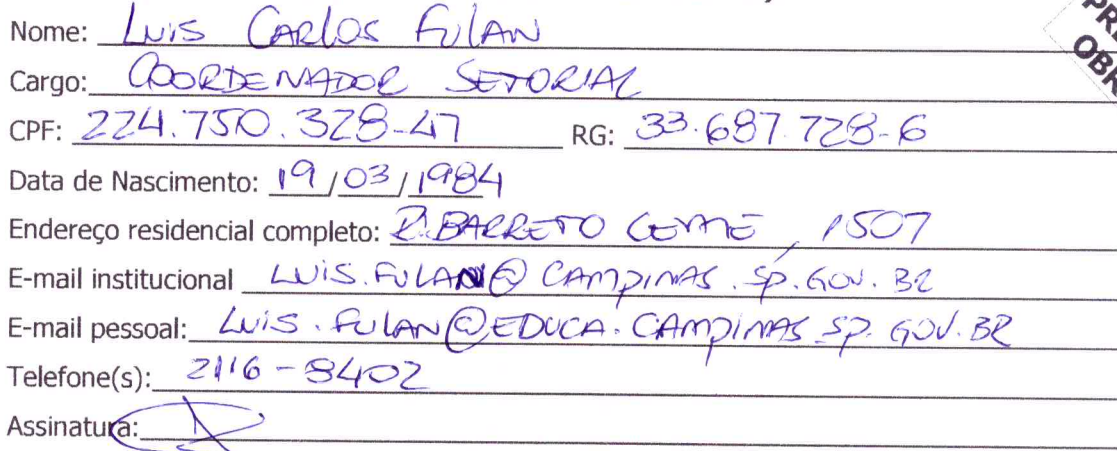 Nome: Luis Carlos Fulan
Cargo: COORDENADOR SETORIAL
CPF: 224.750.328-47 RG: 33.687.728-6
Data de Nascimento: 19/03/1984
Endereço residencial completo: R. BARRETO LEME, 1507
E-mail institucional LUIS.FULAN@CAMPINAS.SP.GOV.BR
E-mail pessoal: LUIS.FULAN@EDUCA.CAMPINAS.SP.GOV.BR
Telefone(s): 2116-8402
Assinatura: